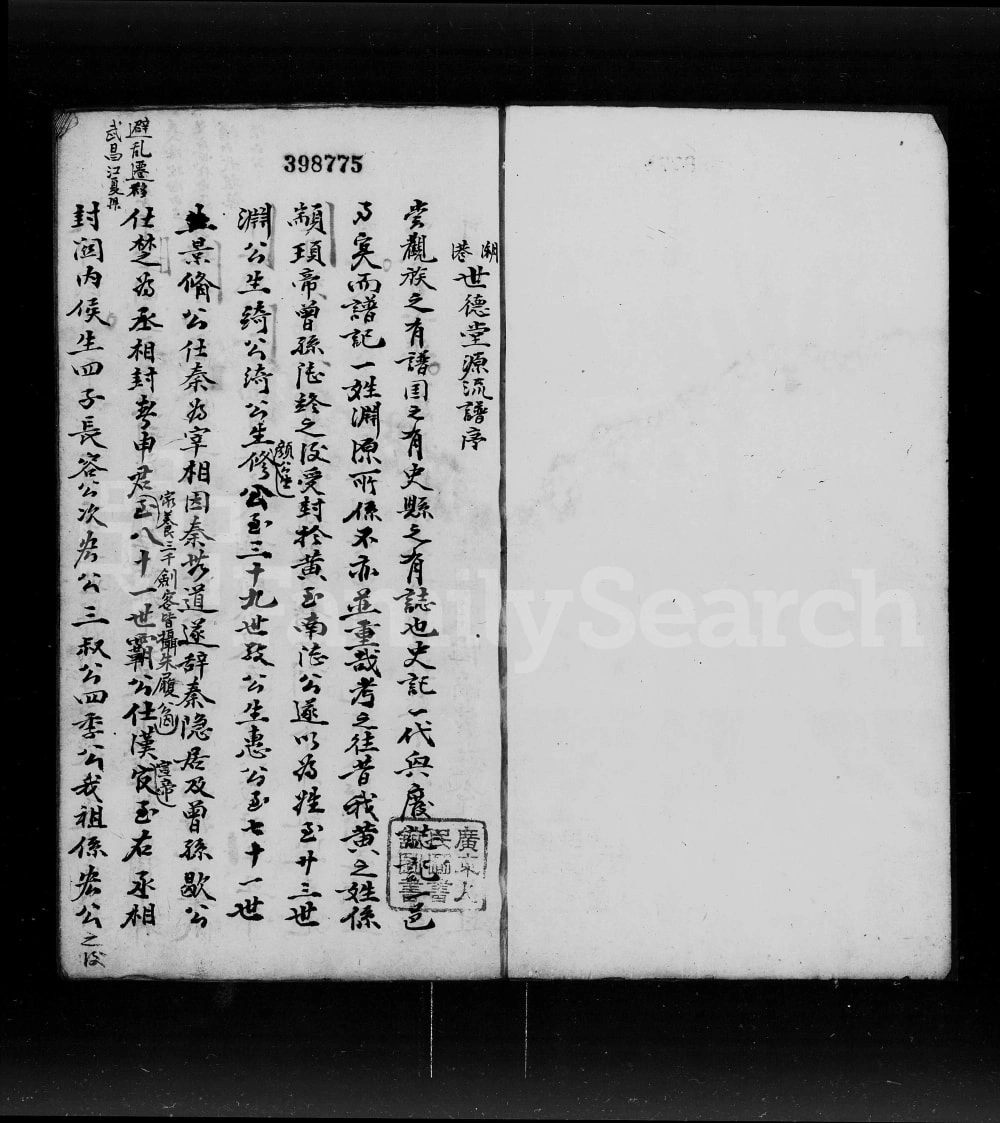 398775
潮港世德堂源流譜序
嘗觀族之有譜国之有史縣之有誌也史記一代興廢誌記一邑
而譜記一姓淵源所係不亦並重哉考之往昔我黄之姓係
顓頊帝曾孫陸終之後受封於黄至南陸公遂以為姓至廿三世
淵公生绮公绮公生修公至三十九世公生惠公至七十一世
景脩公仕秦為宰相因秦無道遂辞秦隐居及曾孫歇公
仕楚為丞相封春申君至八十一世霸公仕漢官至右丞相
家養三千劍客皆攝朱履
宣帝
封関内侯生四子長容公次宏公三叔公四季公我祖係宏公之後
避乱遷移
武昌江夏縣
廣東人民圖書館圖書
FamilySearch